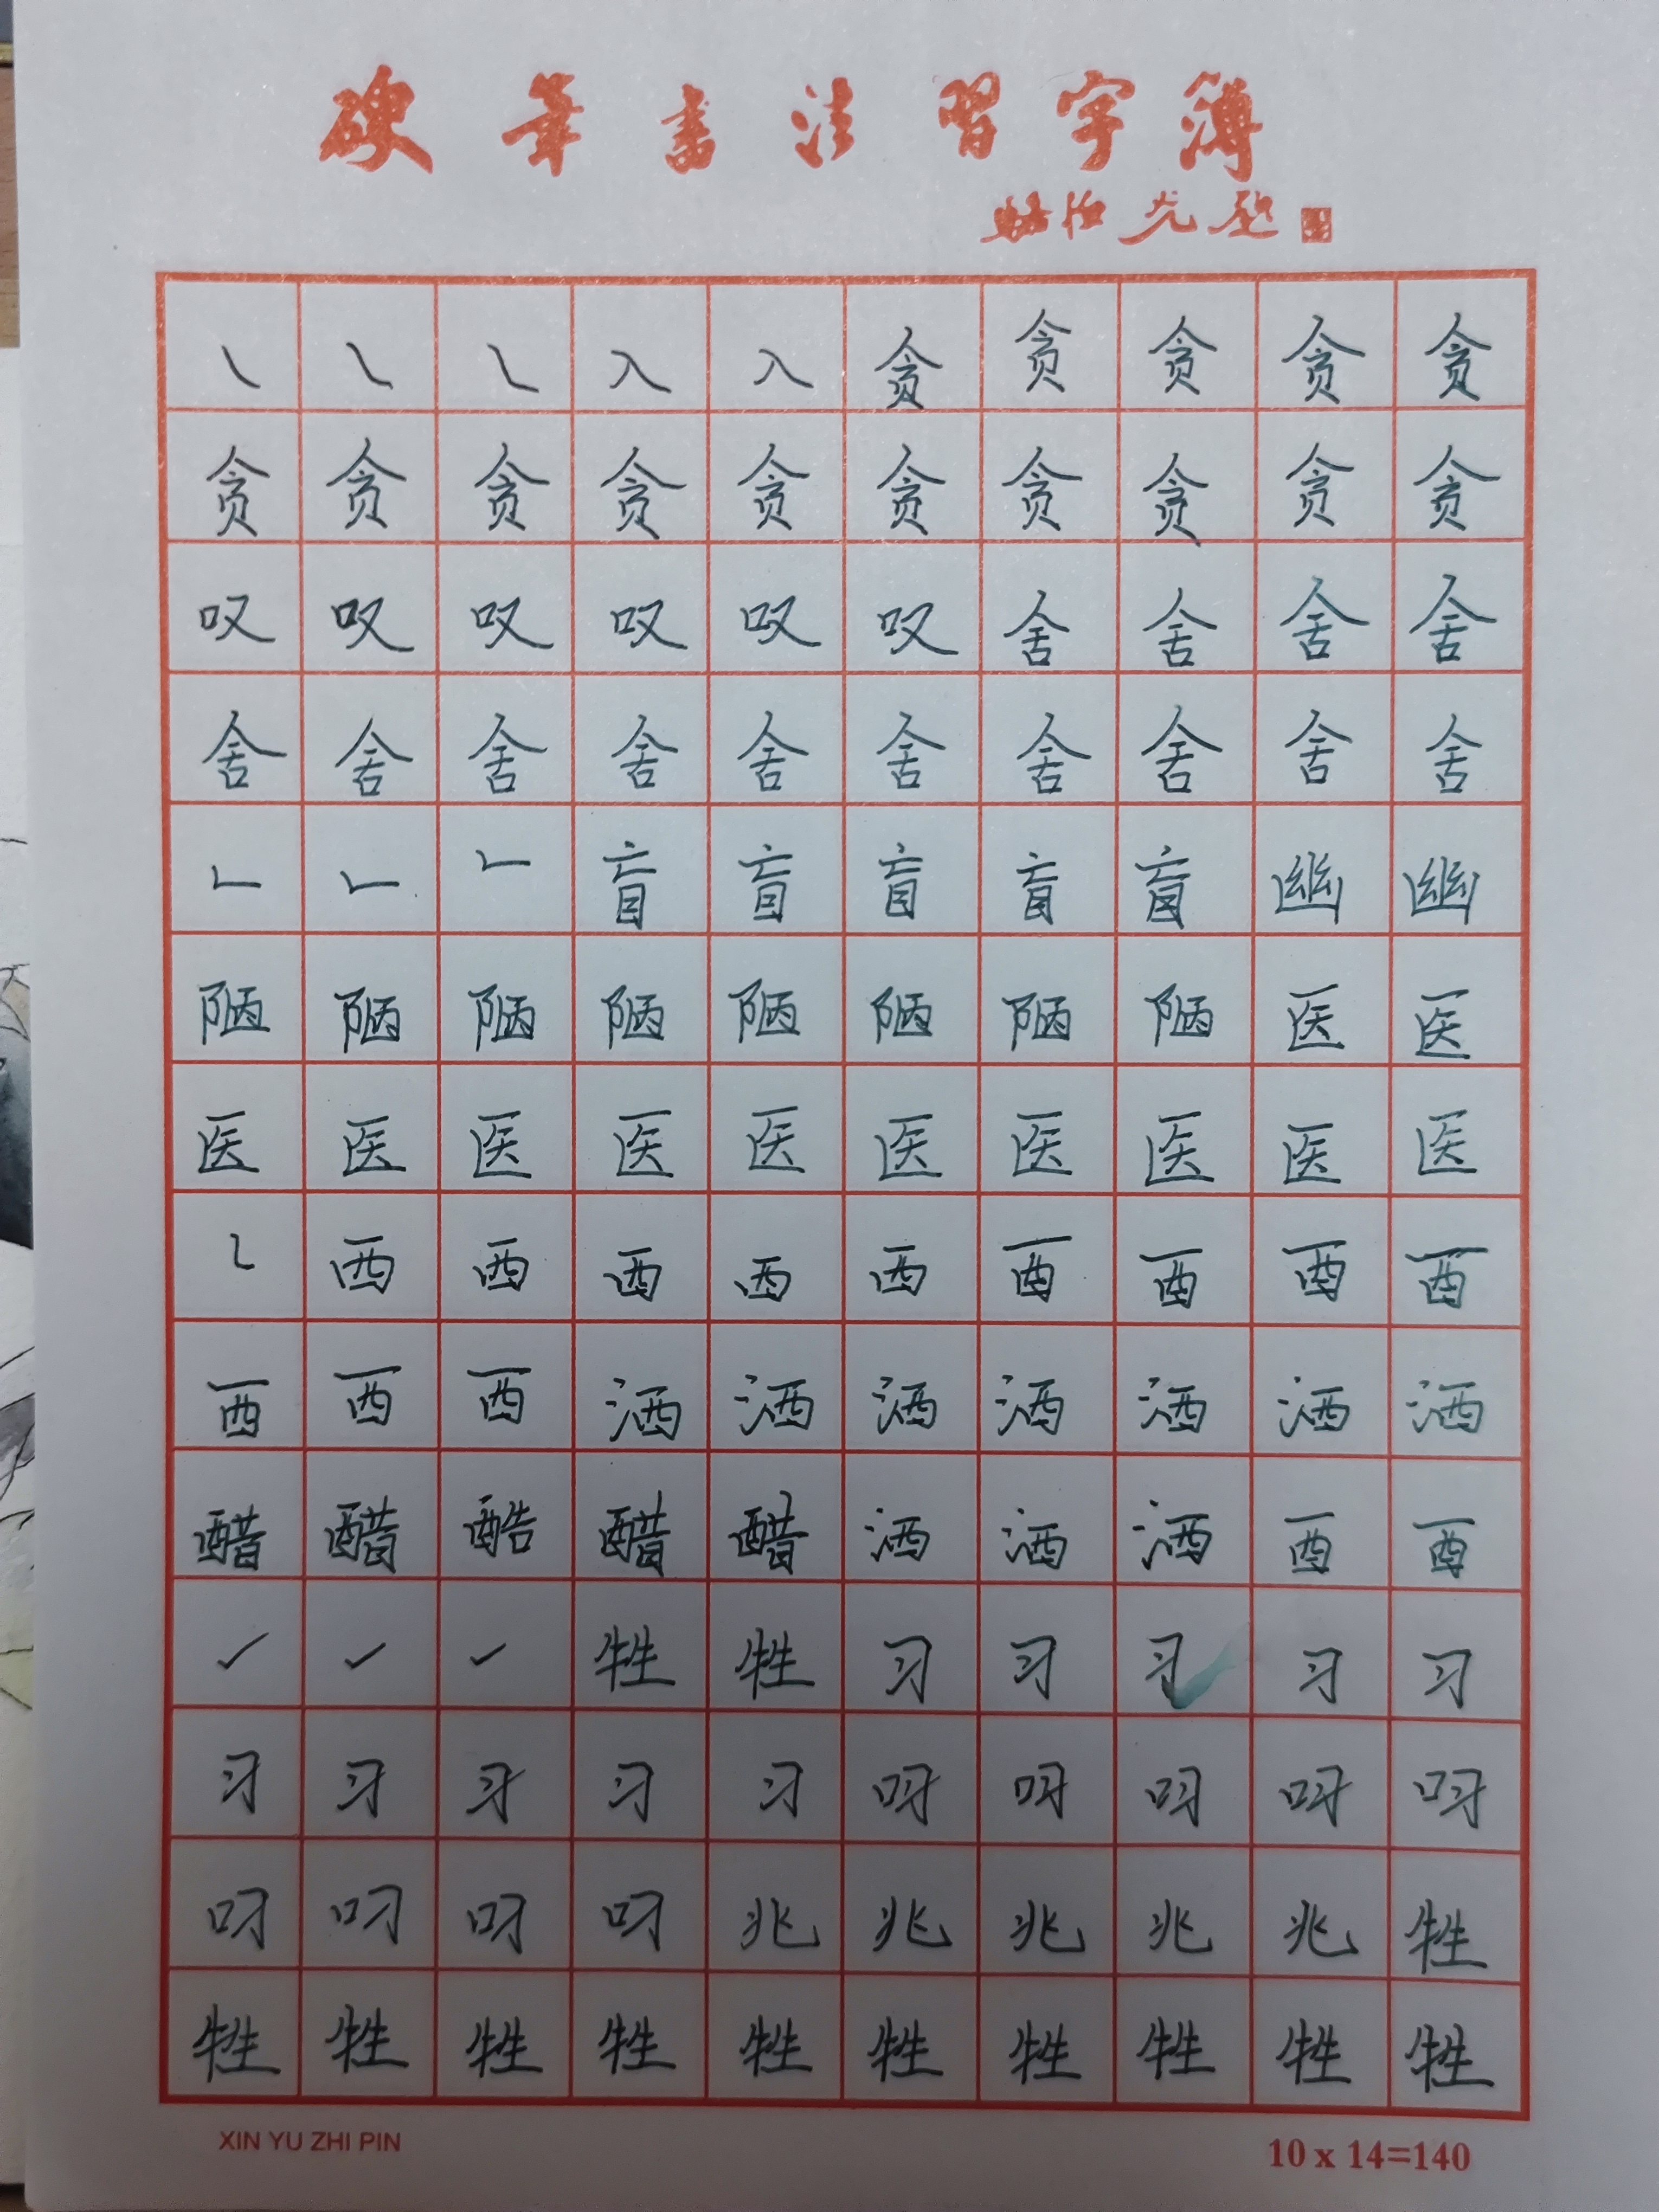 硬笔书法習字簿
入 入 贪 贪 贪 贪 贪
贪 贪 贪 贪 贪 贪 贪 贪 贪 贪
叹 叹 叹 叹 叹 叹 舍 舍 舍 舍
舍 舍 舍 舍 舍 舍 舍 舍 舍 舍
盲 盲 盲 盲 盲 幽 幽
陋 陋 陋 陋 陋 陋 陋 陋 医 医
医 医 医 医 医 医 医 医 医 医
西 西 西 西 西 酉 酉 酉 酉
西 西 西 洒 洒 洒 洒 洒 洒 洒
醋 醋 酷 醋 醋 洒 洒 洒 酉 酉
牲 牲 习 习 习 习 习
习 习 习 习 习 呀 呀 呀 呀 呀
叼 叼 叼 叼 兆 兆 兆 兆 兆 牲
牲 牲 牲 牲 牲 牲 牲 牲 牲 牲
XIN YU ZHI PIN
10 x 14=140